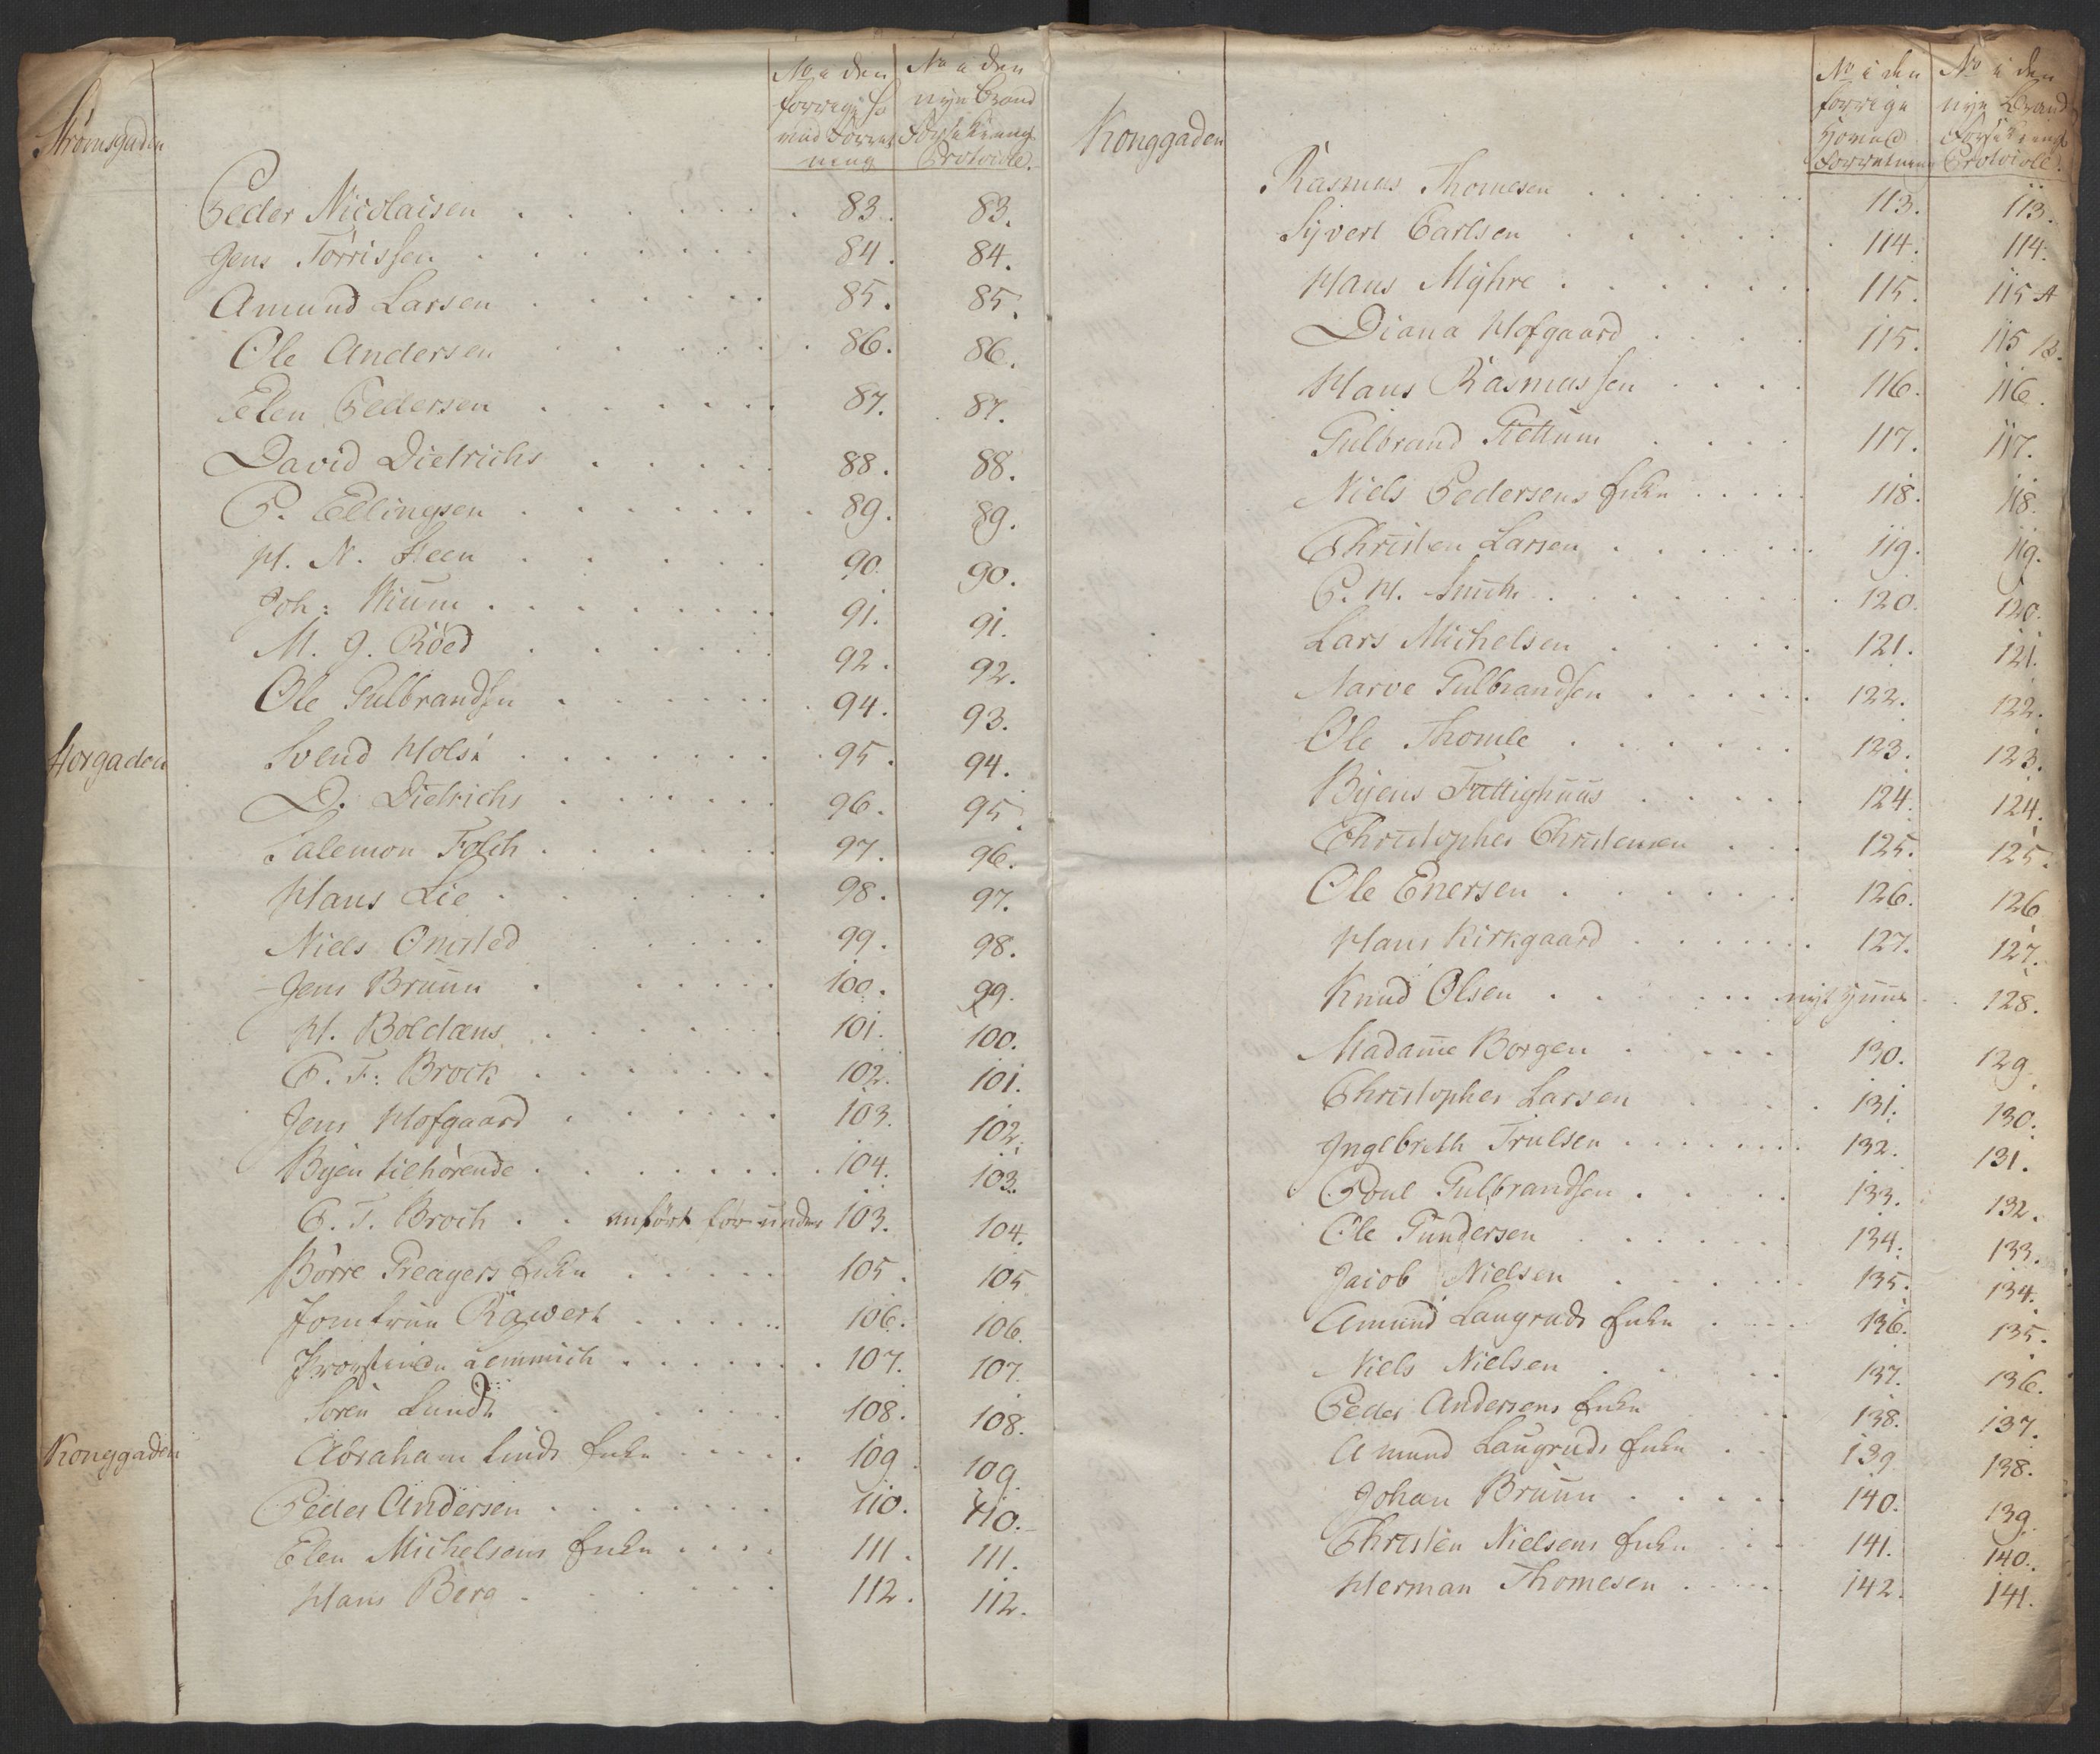 No i den No i den
forrige
nye Brand
Forsikrings
ning Protocoll.
Strømsgaden
Peder Nicolaisen . . . . . . . 83. 83.
Jens Torrissen . . . . . . 84. 84.
Amund Larsen . . . . . . 85. 85.
Ole Andersen . . . . . . 86. 86.
Elen Pedersen . . . . . . 87. 87.
David Dietrichs . . . . . 88. 88.
P. Ellingsen . . . . . . . 89. 89.
H. N. Steen . . . . . . 90. 90.
Joh: Wium . . . . . . . 91. 91.
M. J. Röed . . . . . . 92. 92.
Ole Gulbrandsen . . . . . . . 94. 93.
Storgaden
Svend Holst . . . . . . . 95. 94.
D. Dietrichs . . . . . . 96. 95.
Salemon Falch . . . . . . 97. 96.
Hans Lie . . . . . . 98. 97.
Niels Omsted . . . . . 99. 98.
Jens Bruun . . . . . . 100. 99.
H. Boldæus . . . . . . 101. 100.
P. T: Brock . . . . . . . 102. 101.
Jens Hofgaard . . . . . . 103. 102.
Byen tilhørende . . . . . . . . 104. 103.
P. T. Broch . . anført før under 103. 104.
Börre Greagers Enke . . . . . 105. 105
Jomfrue Rawert . . . . . . 106. 106.
Provstinde Lemmich . . . . . . . 107. 107.
Sören Lundt . . . . . 108. 108.
Konggaden
Abraham Lunds Enke . . . . . 109. 109.
Peder Andersen . . . . . . . 110. 110.
Elen Michelsens Enke . . . . 111. 111.
Hans Berg . . . . . . 112. 112.
No i den No i den
forrige nye Brand
Forsikrings
Forretning Protocoll.
Konggaden
Rasmus Thomesen . . . . . . 113. 113.
Syvert Carlsen . . . . . . 114. 114.
Hans Myhre . . . . . . 115. 115 A
Diana Hofgaard . . . . 115. 115 B.
Hans Rasmussen . . . . 116. 116.
Gulbrand Tettum . . . . 117. 117.
Niels Pedersens Enke . . . . . 118. 118.
Christen Larsen . . . . . . 119. 119.
P. H. Smith . . . . . . . 120. 120.
Lars Michelsen . . . . . . 121. 121.
Narve Gulbrandsen . . . . . . 122. 122.
Ole Thomle . . . . . . 123. 123.
Byens Fattighuus . . . . . 124. 124.
Christopher Christensen . . . 125. 125.
Ole Enersen . . . . . . . 126. 126
Hans Kirkgaard . . . . . . 127. 127.
Knud Olsen . . . . . . . nyt Huus . . 128.
Madame Borgen . . . . . 130. 129.
Christopher Larsen . . . . 131. 130.
Inglbreth Trulsen . . . . . . . 132. 131.
Poul Gulbrandsen . . . . 133. 132.
Ole Gundersen . . . . . . 134. 133.
Jacob Nielsen . . . . . 135. 134.
Amund Laugruds Enke . . . . 136. 135.
Niels Nielsen . . . . . 137. 136.
Peder Andersens Enke . . 138. 137.
Amund Laugruds Enke . . 139 138.
Johan Bruun . . . . . 140. 139.
Christen Nielsens Enke . . . 141. 140.
Herman Thomesen . . . . . 142. 141.